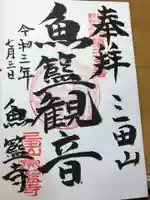 奉拝
三田山
魚籃観音
令和三年
七月三日
魚籃寺